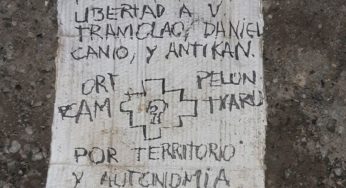 LIBERTAD A V
TRAMOLAO, DANIEL
CANIO, Y ANTIKAN.
ORT PELON
CAM TXARU
POR TERRITORIO
Y AUTONOMÍA